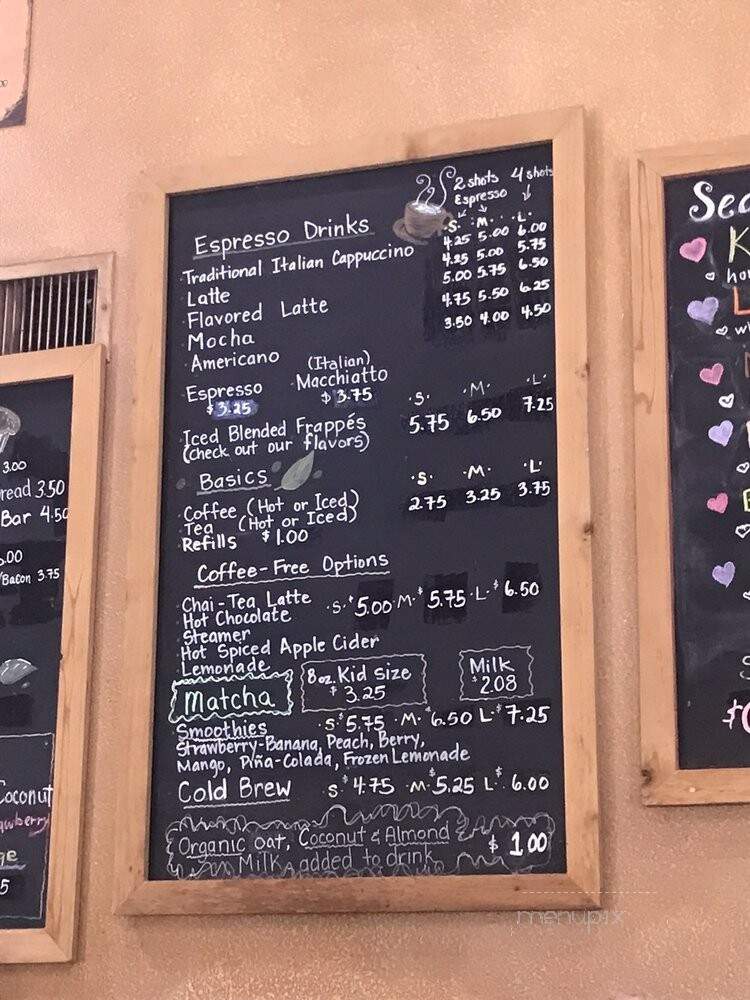 3.00
read 3.50
Bar 4.50
.00
/Bacon 3.75
Coconut
awberry
ge
5
2 shots 4 shots
Espresso
Espresso Drinks
·S· ·M· ·L·
Traditional Italian Cappuccino 4.25 5.00 6.00
Latte 4.25 5.00 5.75
Flavored Latte 5.00 5.75 6.50
Mocha 4.75 5.50 6.25
Americano 3.50 4.00 4.50
Espresso
$3.25
(Italian)
Macchiatto
$3.75
·S· ·M· ·L·
Iced Blended Frappés 5.75 6.50 7.25
(check out our flavors)
Basics ·S· ·M· ·L·
Coffee (Hot or Iced) 2.75 3.25 3.75
Tea (Hot or Iced)
Refills $1.00
Coffee-Free Options
Chai-Tea Latte ·S·$5.00 ·M·$5.75 ·L·$6.50
Hot Chocolate
Steamer
Hot Spiced Apple Cider
Lemonade
Matcha
8oz. Kid Size
$3.25
Milk
$2.08
Smoothies ·S·$5.75 ·M·$6.50 L·$7.25
Strawberry-Banana, Peach, Berry,
Mango, Piña-Colada, Frozen Lemonade
Cold Brew ·S·$4.75 ·M·$5.25 L·$6.00
Organic oat, Coconut & Almond
Milk added to drink $1.00
Sea
K
ho
L
w
menupix